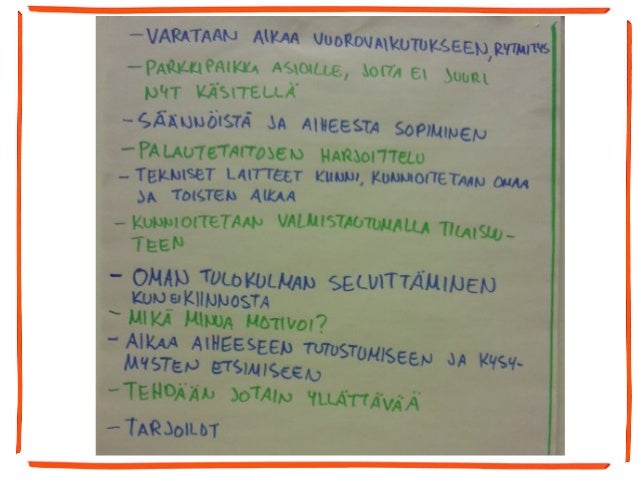 - VARATAAN AIKAA VUOROVAIKUTUKSEEN, RYTMITYS
- PARKKIPAIKKA ASIOILLE, JOITA EI JUURI
NYT KÄSITELLÄ
- SÄÄNNÖISTÄ JA AIHEESTA SOPIMINEN
- PALAUTETAITOJEN HARJOITTELU
- TEKNISET LAITTEET KIINNI, KUNNIOITETAAN OMAA
JA TOISTEN AIKAA
- KUNNIOITETAAN VALMISTAUTUMALLA TILAISUU-
TEEN
- OMAN TULOKULMAN SELVITTÄMINEN
KUN EI KIINNOSTA
- MIKÄ MINUA MOTIVOI?
- AIKAA AIHEESEEN TUTUSTUMISEEN JA KYSY-
MYSTEN ETSIMISEEN
- TEHDÄÄN JOTAIN YLLÄTTÄVÄÄ
- TARJOILUT